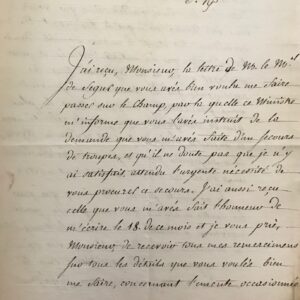 J'ai reçu, Monsieur, la lettre de Mr. le Mal.
de Segur que vous avés bien voulu me faire
passer sur le champ, par la quelle ce Ministre
m'informe que vous l'avés instruit de la
demande que vous m'avés faite d'un secours
de troupes, et qu'il ne doute pas que je n'y
ai satisfait, attendu l'urgente nécessité de
vous procurer ce secours. J'ai aussi reçu
celle que vous m'avés fait l'honneur de
m'écrire le 18. de ce mois et je vous prie,
Monsieur, de recevoir tous mes remerciemens
sur tous les détails que vous voulés bien
me faire, concernant l'émeute occasionnée